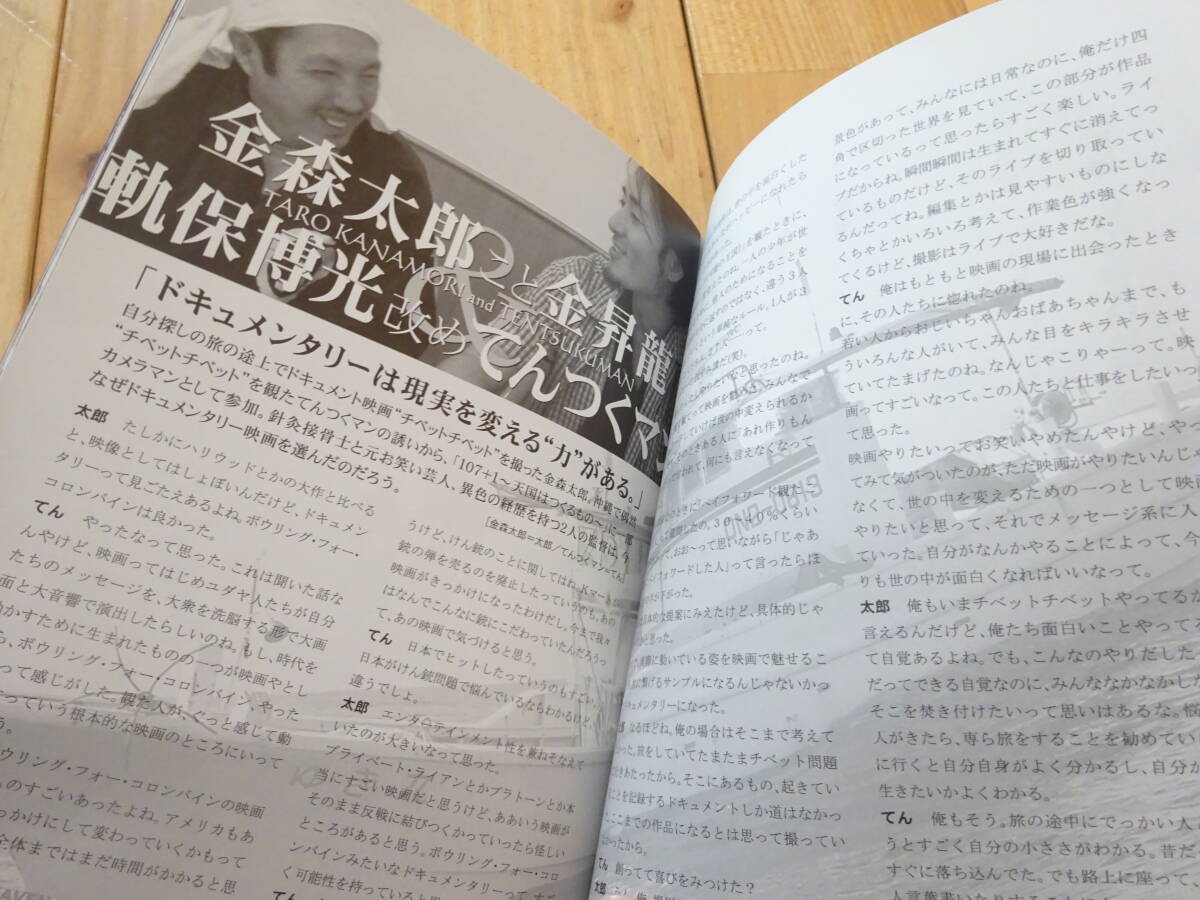 金森太郎こと金昇龍
TARO KANAMORI and TENTSUKUMAN
軌保博光改めてんつくマン
「ドキュメンタリーは現実を変える“力”がある。」
自分探しの旅の途上でドキュメント映画“チベットチベット”を撮った金森太郎。沖縄で偶然
“チベットチベット”を観たてんつくマンの誘いから、「107+1～天国はつくるもの～」に一部
カメラマンとして参加。針灸接骨士と元お笑い芸人、異色の経歴を持つ2人の監督は、今
なぜドキュメンタリー映画を選んだのだろう。
[金森太郎=太郎/てんつくマン=てん]
太郎 たしかにハリウッドとかの大作と比べる
と、映像としてはしょぼいんだけど、ドキュメン
タリーって見ごたえあるよね。ボウリング・フォー・
コロンバインは良かった。
てん やったなって思った。これは聞いた話な
んやけど、映画ってはじめユダヤ人たちが自分
たちのメッセージを、大衆を洗脳する形で大画
面と大音響で演出したらしいのね。もし、時代を
動かすために生まれたものの一つが映画やとし
ら、ボウリング・フォー・コロンバイン、やった
って感じがした。観た人が、ぐっと感じて動
っていう根本的な映画のところにいって
う。
ボウリング・フォー・コロンバインの映画
ものすごいあったよね。アメリカもあ
っかけにして変わっていくかもって
全体まではまだ時間がかかると思
うけど、けん銃のことに関してはね。Kマートが
銃の弾を売るのを廃止したっていうのも、あの
映画がきっかけになったわけだし。今まで我々
はなんでこんなに銃にこだわっていたんだろうっ
て、あの映画で気づけると思う。
てん 日本でヒットしたっていうのもすごい。
日本がけん銃問題で悩んでいるならわかるけど、
違うでしょ。
太郎 エンターテインメント性を兼ねそなえて
いたのが大きいなって思った。
プライベート・ライアンとかプラトーンとか本
当にすごい映画だと思うけど、ああいう映画が
そのまま反戦に結びつくかっていったら怪しい
ところがあると思う。ボウリング・フォー・コロ
ンバインみたいなドキュメンタリーって、すごい
く可能性を持っていると思う
を観たときに、
たのね。一人の少年が世
人のためになることを
すのではなく、違う3人
単純なルール。1人が3
って。
誰だ(笑)。
りたいなと思ったのね。
って映画を観ればみんなで
していけば世の中変えられるか
のときある人に「あれ作りもん
われて、何にも言えなくなって
きに「ペイフォワード観た
質問したの。30～40%くらい
て、おお～って思いながら「じゃあ
イフォワードした人」って言ったらほ
下がった。
な提案にみえたけど、具体的じゃ
思った。
実際に動いている姿を映画で魅せるこ
繋げるサンプルになるんじゃないかっ
キュメンタリーになった。
なるほどね。俺の場合はそこまで考えて
かった。旅をしていてたまたまチベット問題
きあたったから。そこにあるもの、起きてい
ことを記録するドキュメントしか道はなかっ
ここまでの作品になるとは思って撮ってい
かったから。
てん 創ってて喜びをみつけた?
太郎
景色があって、みんなには日常なのに、俺だけ四
角で区切った世界を見ていて、この部分が作品
になっているって思ったらすごく楽しい。ライ
ブだからね。瞬間瞬間は生まれてすぐに消えてっ
ているものだけど、そのライブを切り取ってい
るんだってね。編集とかは見やすいものにしな
くちゃとかいろいろ考えて、作業色が強くなっ
てくるけど、撮影はライブで大好きだな。
てん 俺はもともと映画の現場に出会ったとき
に、その人たちに惚れたのね。
若い人からおじいちゃんおばあちゃんまで、も
ういろんな人がいて、みんな目をキラキラさせ
ていてたまげたのね。なんじゃこりゃーって。映
画ってすごいなって。この人たちと仕事をしたいっ
て思った。
映画やりたいってお笑いやめたんやけど、やっ
てみて気がついたのが、ただ映画がやりたいんじゃ
なくて、世の中を変えるための一つとして映画
やりたいと思って、それでメッセージ系に入
ていった。自分がなんかやることによって、今
りも世の中が面白くなればいいなって。
太郎 俺もいまチベットチベットやってるか
言えるんだけど、俺たち面白いことやって
て自覚あるよね。でも、こんなのやりだした
だってできる自覚なのに、みんななかなかし
そこを焚き付けたいって思いはあるな。悩
人がきたら、専ら旅をすることを勧めてい
に行くと自分自身がよく分かるし、自分が
生きたいかよくわかる。
てん 俺もそう。旅の途中にでっかい人
うとすごく自分の小ささがわかる。昔だ
すぐに落ち込んでた。でも路上に座って、